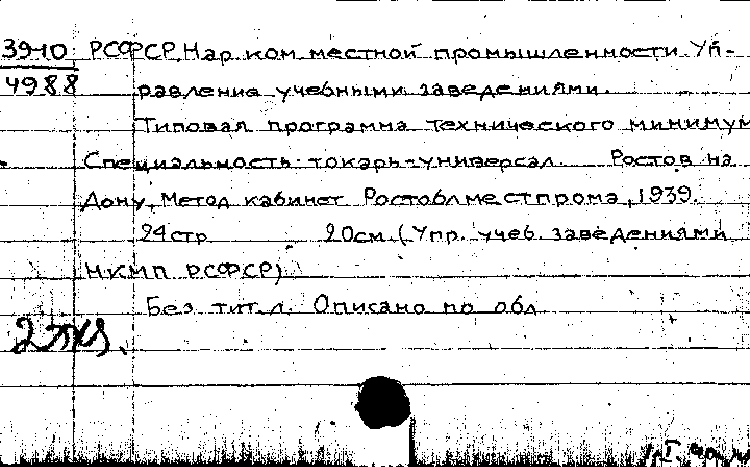 39-10 РСФСР. Нар. ком. местной промышленности. Уп-
4988 равление учебными заведениями.
Типовая программа технического миниму
Специальность: токарь-универсал. Ростов на
Дону, Метод кабинет Ростоблместпрома, 1939.
24стр 20см. (Упр. учеб. заведениями
НКМП РСФСР)
Без тит. л. Описано по обл
2 экз.